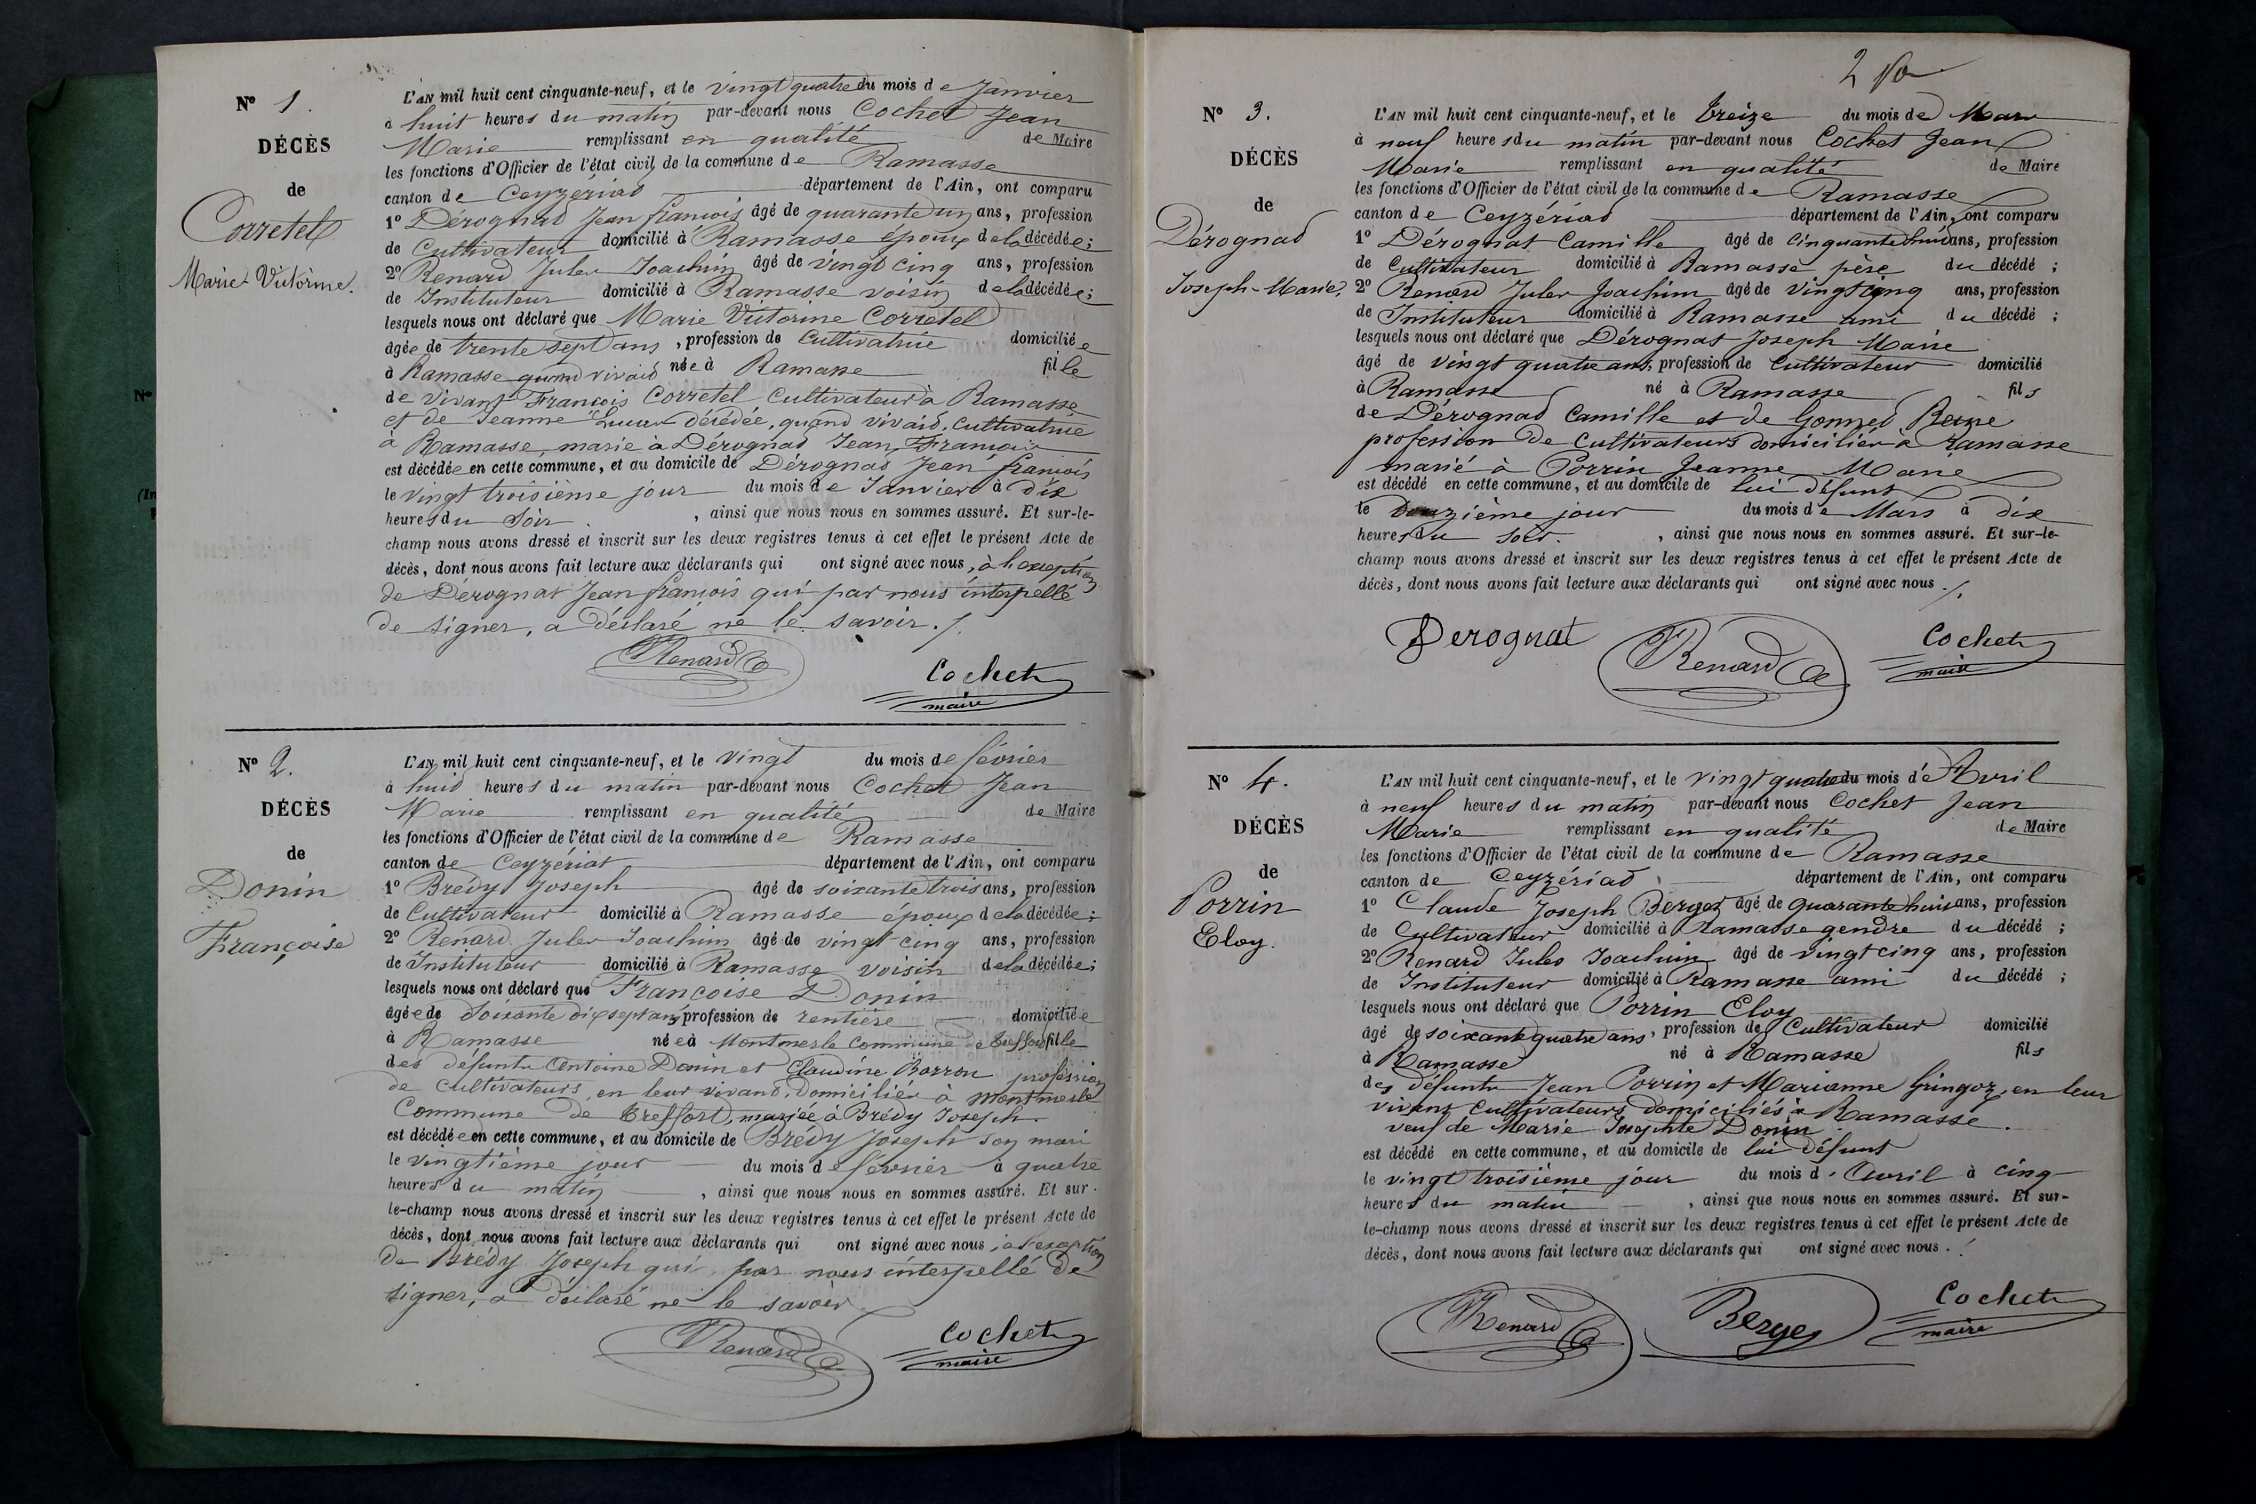 N° 1.
DÉCÈS
de
Corretel
Marie Victorine.
L'AN mil huit cent cinquante-neuf, et le vingt quatre du mois de Janvier
à huit heures du matin par-devant nous Cochet Jean
Marie remplissant en qualité de Maire
les fonctions d'Officier de l'état civil de la commune de Ramasse
canton de Ceyzériat département de l'Ain, ont comparu
1° Dérognat Jean françois âgé de quarante un ans, profession
de Cultivateur domicilié à Ramasse époux de la décédée ;
2° Renard Jules Joachim âgé de vingt cinq ans, profession
de Instituteur domicilié à Ramasse voisin de la décédée ;
lesquels nous ont déclaré que Marie Victorine Corretel
âgée de trente sept ans, profession de Cultivatrice domiciliée
à Ramasse quand vivait née à Ramasse fille
de vivant François Corretel Cultivateur à Ramasse
et de Jeanne Lucas décédée, quand vivait, Cultivatrice
à Ramasse, marie à Dérognat Jean, François
est décédée en cette commune, et au domicile de Dérognat Jean françois
le vingt troisième jour du mois de Janvier à dix
heures du soir , ainsi que nous nous en sommes assuré. Et sur-le-
champ nous avons dressé et inscrit sur les deux registres tenus à cet effet le présent Acte de
décès, dont nous avons fait lecture aux déclarants qui ont signé avec nous, à l'exception
de Dérognat Jean françois qui par nous interpellé
de signer, a déclaré ne le savoir ./.
Renard
Cochet
maire
N° 2.
DÉCÈS
de
Donin
Françoise
L'AN mil huit cent cinquante-neuf, et le vingt du mois de février
à huit heures du matin par-devant nous Cochet Jean
Marie remplissant en qualité de Maire
les fonctions d'Officier de l'état civil de la commune de Ramasse
canton de Ceyzériat département de l'Ain, ont comparu
1° Brédy Joseph âgé de soixante trois ans, profession
de Cultivateur domicilié à Ramasse époux de la décédée ;
2° Renard Jules Joachim âgé de vingt cinq ans, profession
de Instituteur domicilié à Ramasse voisin de la décédée ;
lesquels nous ont déclaré que Françoise Donin
âgée de soixante dix sept ans, profession de rentière domiciliée
à Ramasse née à Montmerle Commune de Treffort fille
des défunts Antoine Donin et Claudine Borron profession
de Cultivateurs en leur vivant, Domiciliés à Montmerle
Commune de Treffort, mariée à Brédy Joseph.
est décédée en cette commune, et au domicile de Brédy Joseph son mari
le vingtième jour du mois de février à quatre
heures du matin , ainsi que nous nous en sommes assuré. Et sur-
le-champ nous avons dressé et inscrit sur les deux registres tenus à cet effet le présent Acte de
décès, dont nous avons fait lecture aux déclarants qui ont signé avec nous, à l'exception
de Brédy Joseph qui, par nous interpellé de
signer, a déclaré ne le savoir
Renard
Cochet
maire
2
N° 3.
DÉCÈS
de
Dérognat
Joseph-Marie.
L'AN mil huit cent cinquante-neuf, et le treize du mois de Mars
à neuf heures du matin par-devant nous Cochet Jean
Marie remplissant en qualité de Maire
les fonctions d'Officier de l'état civil de la commune de Ramasse
canton de Ceyzériat département de l'Ain, ont comparu
1° Dérognat Camille âgé de Cinquante huit ans, profession
de Cultivateur domicilié à Ramasse père du décédé ;
2° Renard Jules Joachim âgé de vingt cinq ans, profession
de Instituteur domicilié à Ramasse ami du décédé ;
lesquels nous ont déclaré que Dérognat Joseph Marie
âgé de vingt quatre ans, profession de Cultivateur domicilié
à Ramasse né à Ramasse fils
de Dérognat Camille et de Gonnet Reine
profession de Cultivateurs domiciliés à Ramasse
marié à Porrin Jeanne Marie
est décédé en cette commune, et au domicile de lui défunt
le douzième jour du mois de Mars à dix
heures du soir. , ainsi que nous nous en sommes assuré. Et sur-le-
champ nous avons dressé et inscrit sur les deux registres tenus à cet effet le présent Acte de
décès, dont nous avons fait lecture aux déclarants qui ont signé avec nous ./.
Derognat
Renard
Cochet
maire
N° 4.
DÉCÈS
de
Porrin
Eloy.
L'AN mil huit cent cinquante-neuf, et le vingt quatre du mois d'Avril
à neuf heures du matin par-devant nous Cochet Jean
Marie remplissant en qualité de Maire
les fonctions d'Officier de l'état civil de la commune de Ramasse
canton de Ceyzériat département de l'Ain, ont comparu
1° Claude Joseph Berger âgé de quarante huit ans, profession
de Cultivateur domicilié à Ramasse gendre du décédé ;
2° Renard Jules Joachim âgé de vingt cinq ans, profession
de Instituteur domicilié à Ramasse ami du décédé ;
lesquels nous ont déclaré que Porrin Eloy
âgé de soixante quatre ans, profession de Cultivateur domicilié
à Ramasse né à Ramasse fils
des défunts Jean Porrin et Marianne Gringoz, en leur
vivant Cultivateurs domiciliés à Ramasse.
veuf de Marie Josephte Donin
est décédé en cette commune, et au domicile de lui défunt
le vingt troisième jour du mois d'Avril à cinq
heures du matin , ainsi que nous nous en sommes assuré. Et sur-
le-champ nous avons dressé et inscrit sur les deux registres tenus à cet effet le présent Acte de
décès, dont nous avons fait lecture aux déclarants qui ont signé avec nous ./.
Renard
Berger
Cochet
maire